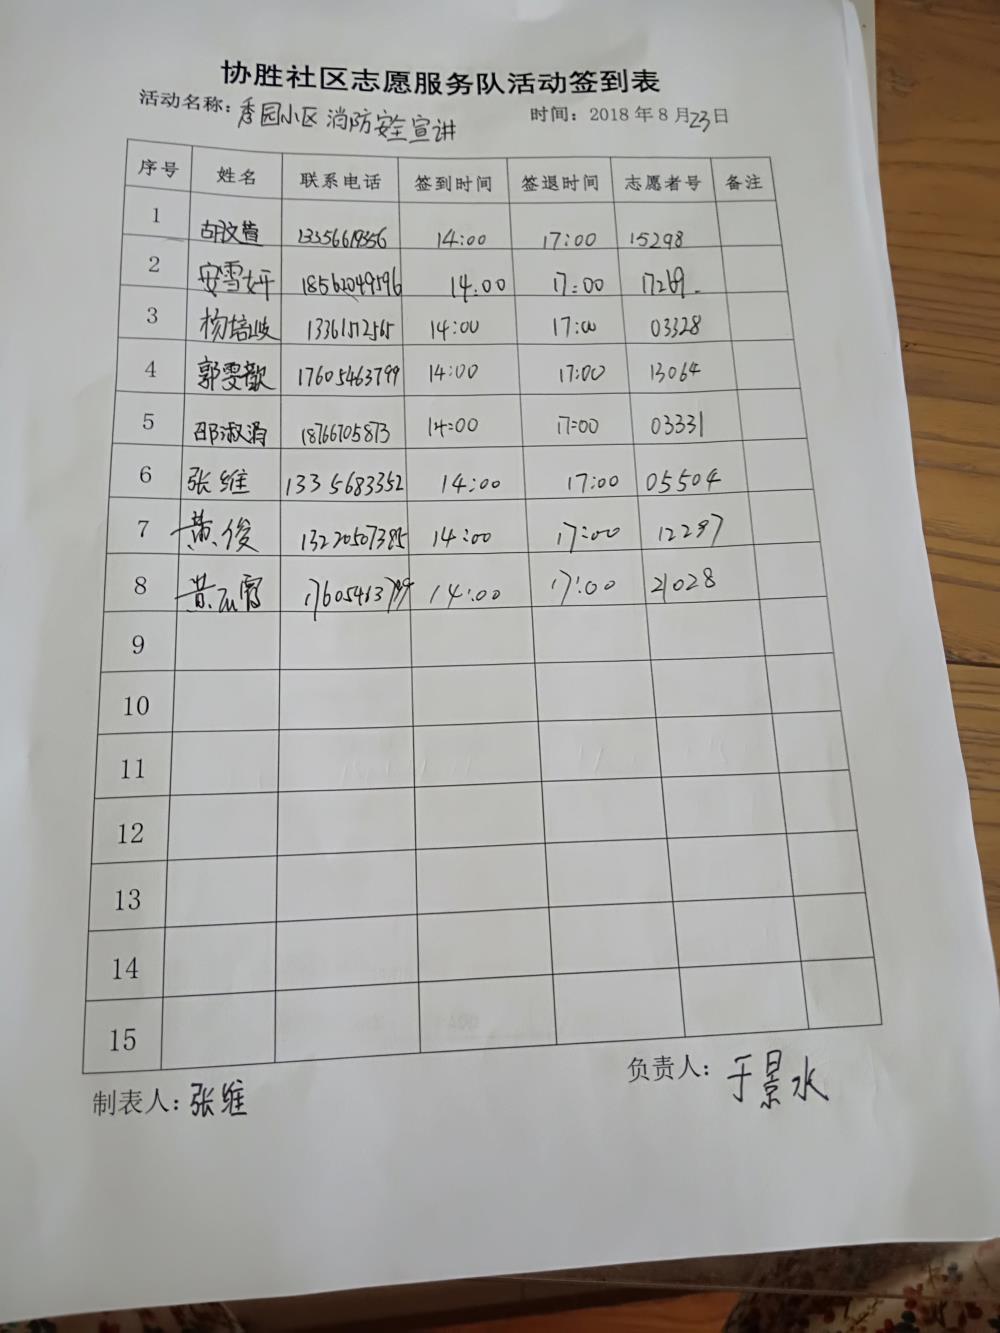 协胜社区志愿服务队活动签到表
活动名称：秀园小区消防安全宣讲 时间：2018年8月23日
序号 姓名 联系电话 签到时间 签退时间 志愿者号 备注
1 胡文萱 13356619356 14:00 17:00 15298
2 安雪妍 18562049596 14:00 17:00 17269
3 杨培 13361512565 14:00 17:00 03328
4 郭雯歆 17605463799 14:00 17:00 13064
5 邵淑娟 18766705873 14:00 17:00 03331
6 张维 13356833352 14:00 17:00 05504
7 黄俊 13220507385 14:00 17:00 12297
8 黄 17605463799 14:00 17:00 21028
9
10
11
12
13
14
15
制表人：张维 负责人：于景水